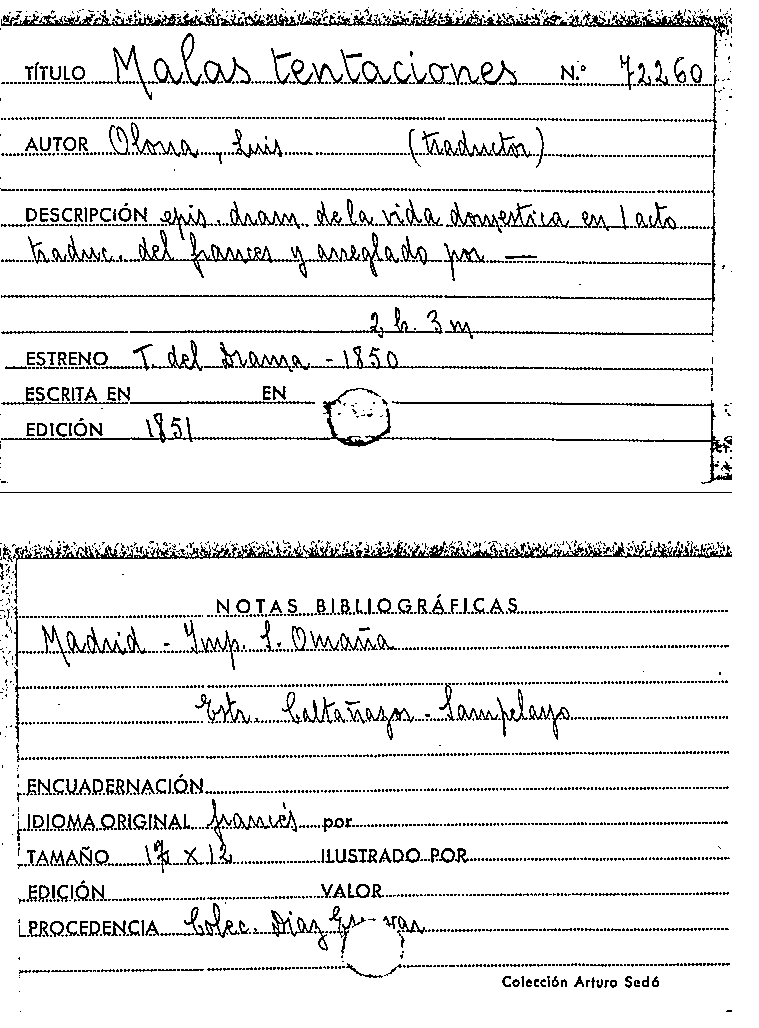 TÍTULO Malas tentaciones N.º 72260
AUTOR Olona, Luis (traductor)
DESCRIPCIÓN epis. dram. de la vida domestica en 1 acto
traduc. del frances y arreglado por —
2 h. 3 m
ESTRENO T. del Drama - 1850
ESCRITA EN EN
EDICIÓN 1851
NOTAS BIBLIOGRÁFICAS
Madrid - Imp. S. Omaña
Estr. Caltañazor - Sampelayo
ENCUADERNACIÓN
IDIOMA ORIGINAL francés por
TAMAÑO 17 X 12 ILUSTRADO POR
EDICIÓN VALOR
PROCEDENCIA Colec. Diaz
Colección Arturo Sedó